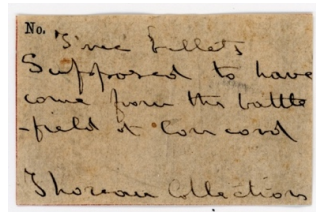 No.
bullets
Supposed to have
come from the battle
-field at Concord
Thoreau Collection